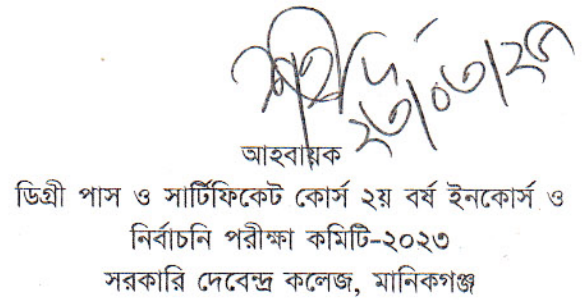 ২৩/০৩/২৫
আহবায়ক
ডিগ্রী পাস ও সার্টিফিকেট কোর্স ২য় বর্ষ ইনকোর্স ও
নির্বাচনি পরীক্ষা কমিটি-২০২৩
সরকারি দেবেন্দ্র কলেজ, মানিকগঞ্জ